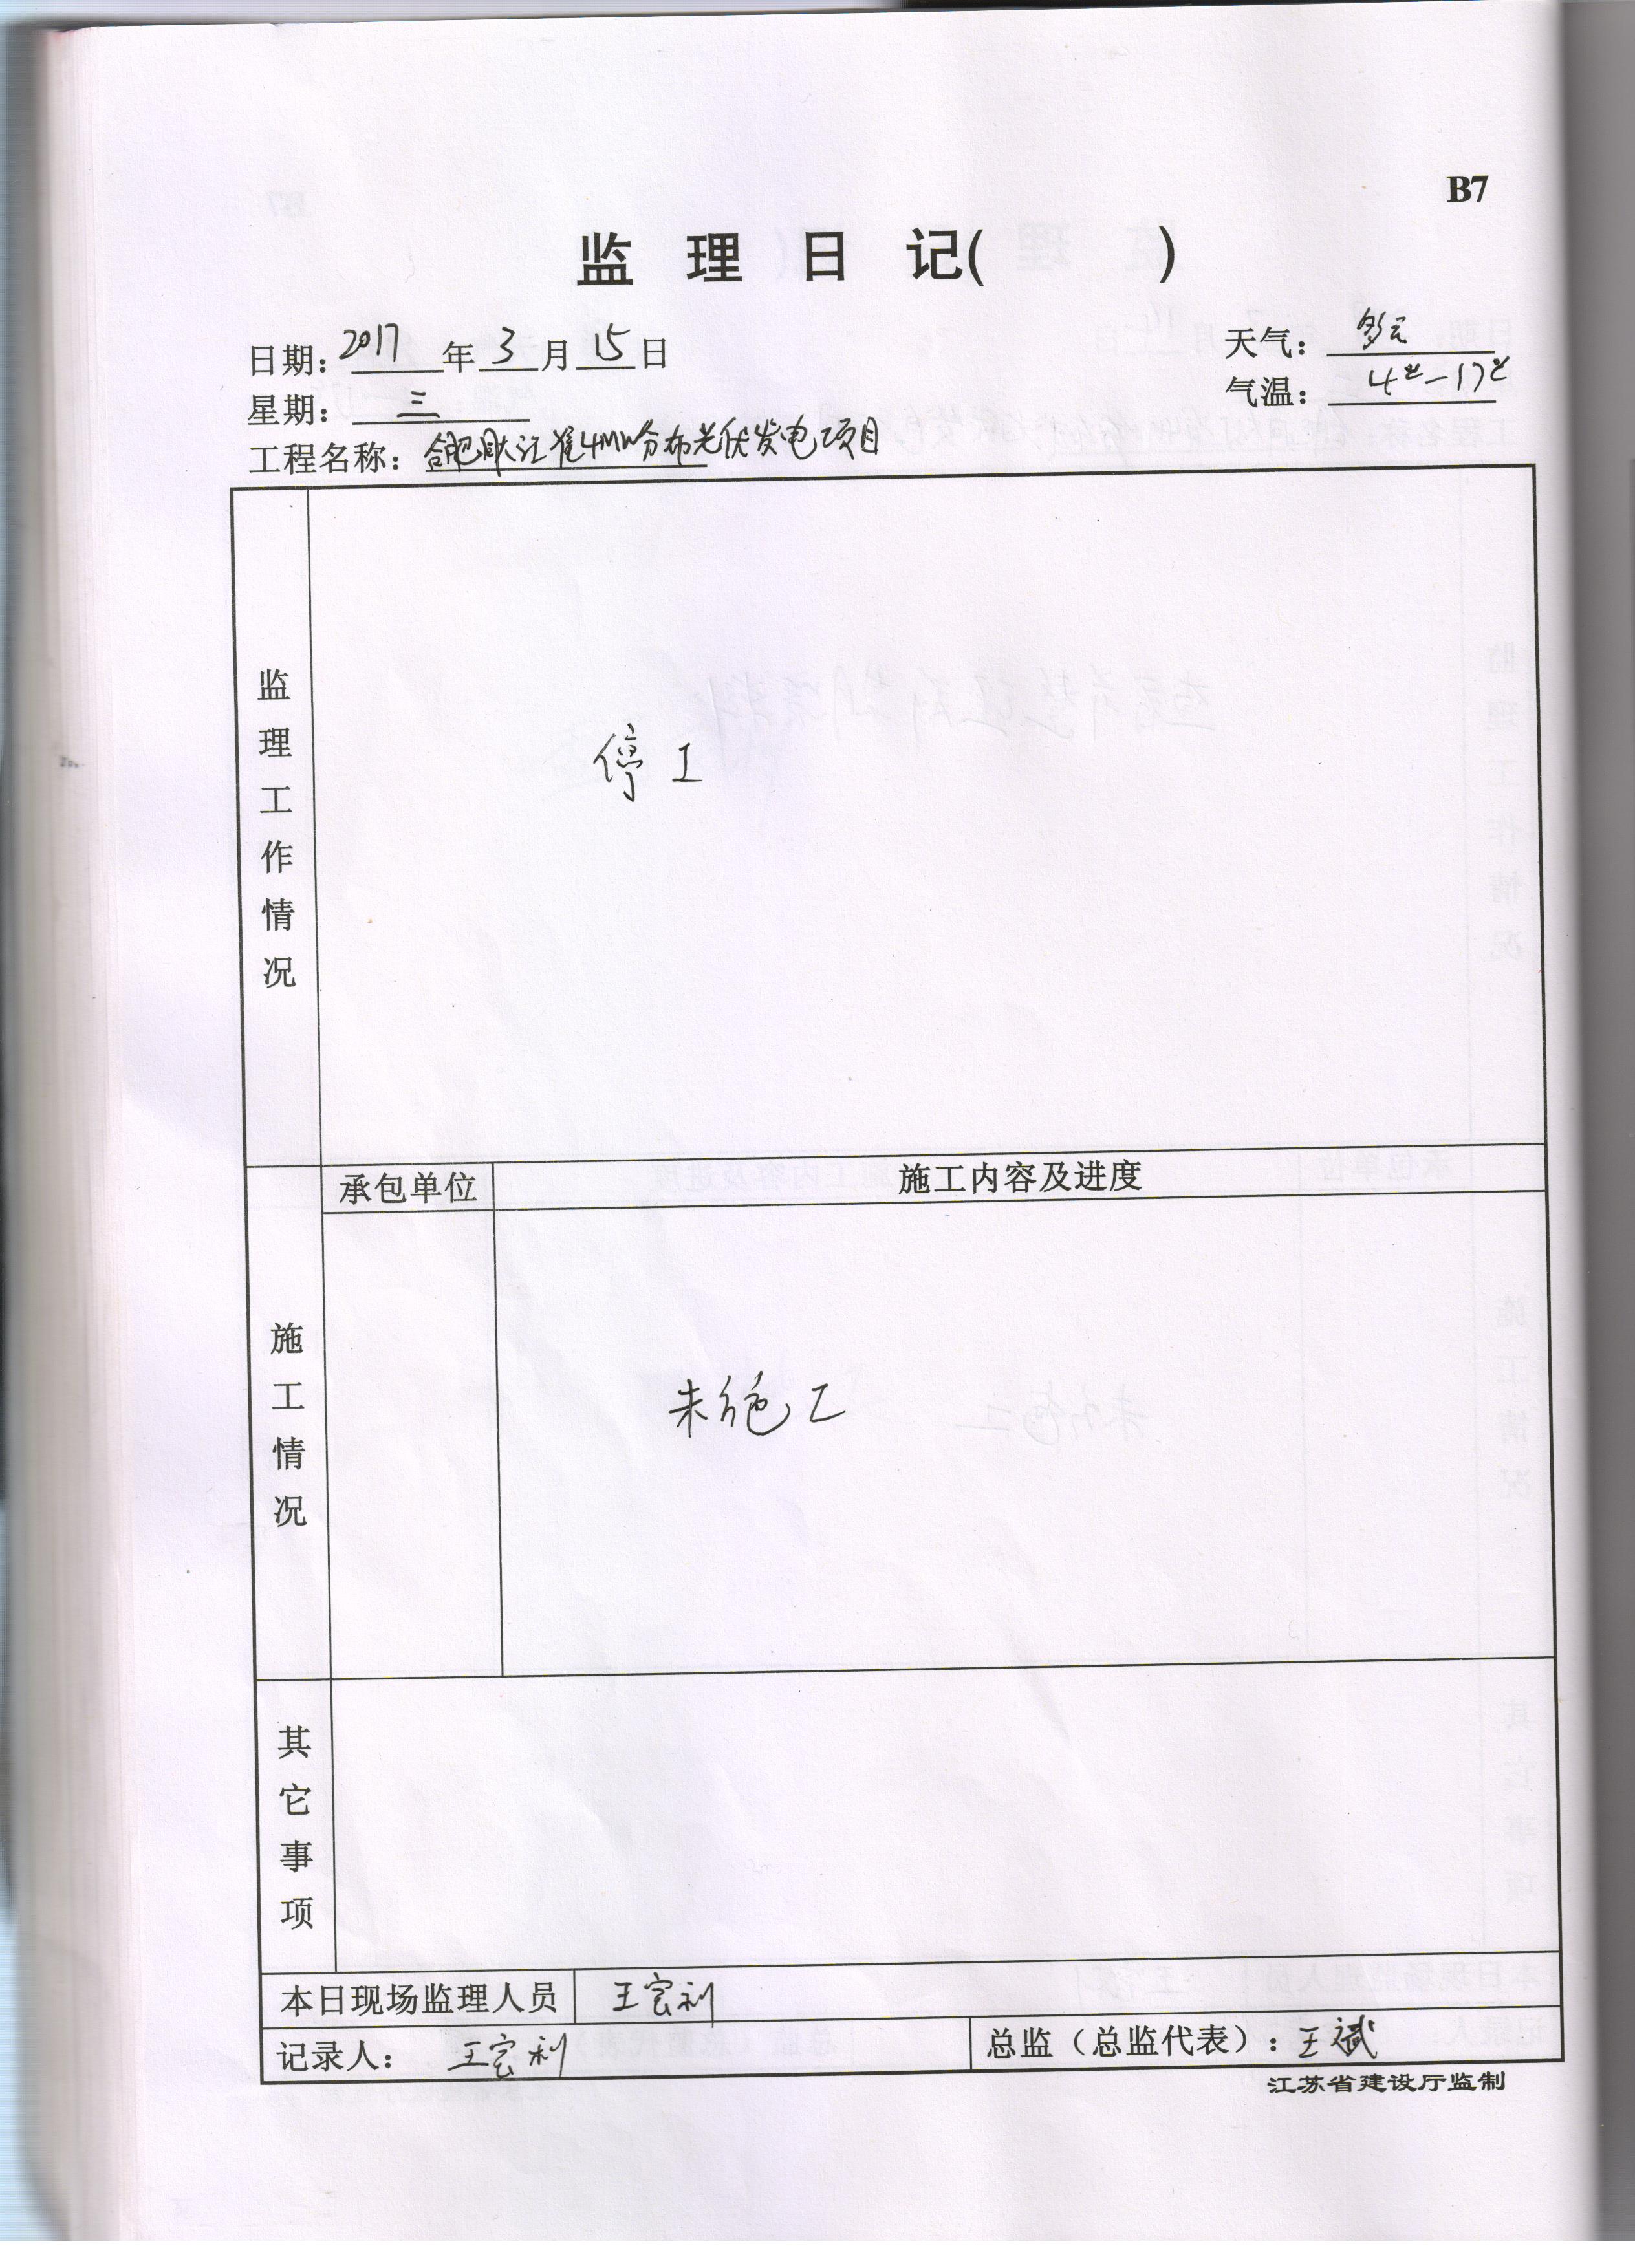 B7
监理日记( )
日期：2017年3月15日 天气：多云
星期：三 气温：4℃-17℃
工程名称：合肥江淮4MW分布光伏发电项目
监理工作情况
停工
施工情况
承包单位 施工内容及进度
未施工
其它事项
本日现场监理人员 王宏利
记录人：王宏利 总监（总监代表）：王斌
江苏省建设厅监制